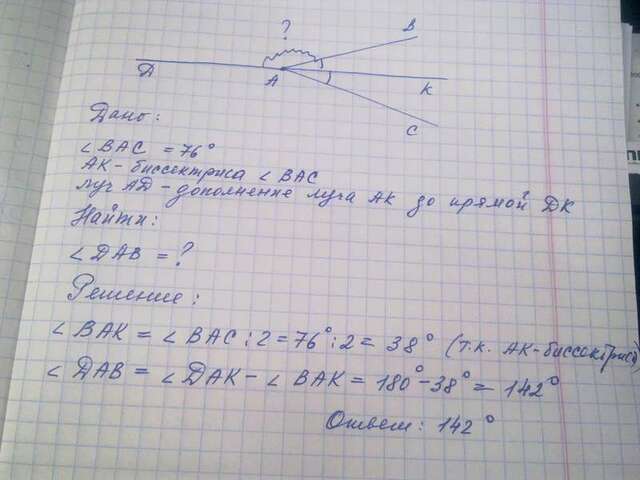 ?
В
Д
А
К
С
Дано:
∠ BAC = 76°
АК - биссектриса ∠ BAC
луч AD - дополнение луча АК до прямой DK
Найти:
∠ DAB = ?
Решение:
∠ BAK = ∠ BAC : 2 = 76° : 2 = 38° (т.к. АК-биссектриса)
∠ DAB = ∠ DAK - ∠ BAK = 180° - 38° = 142°
Ответ: 142°